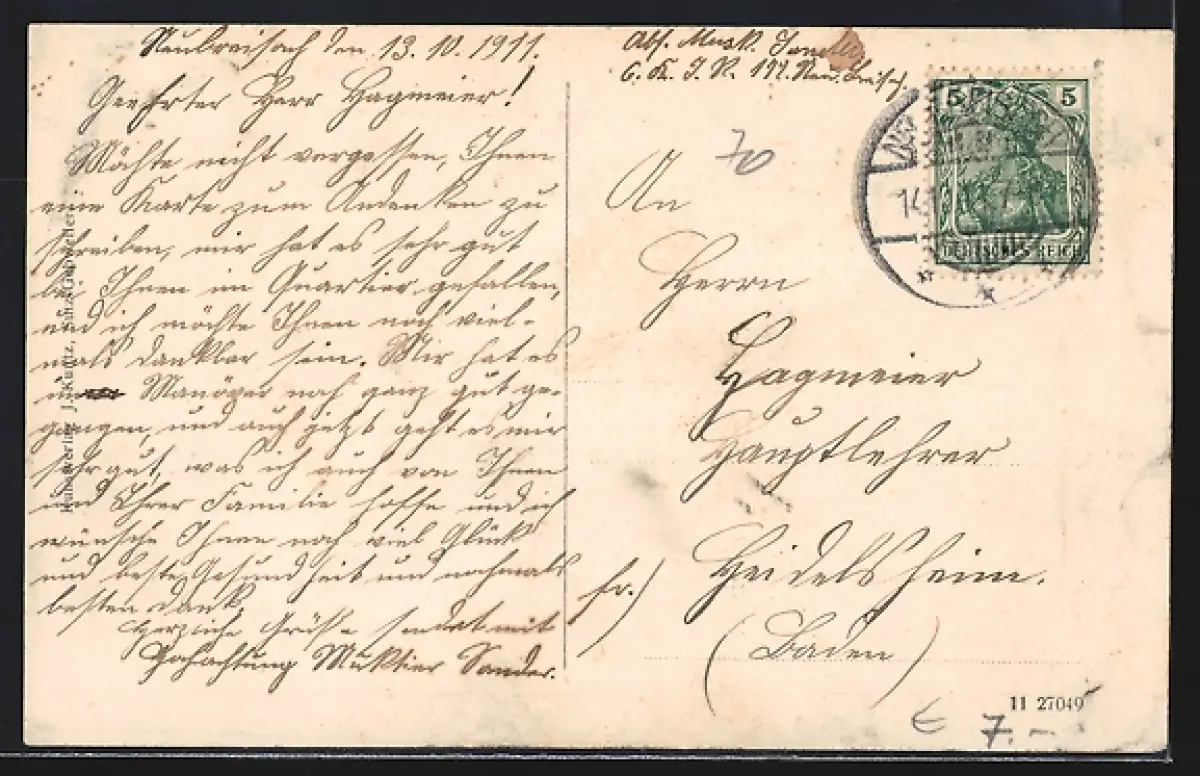 Neubreisach den 13.10.1911.
Geehrter Herr Hagmeier!
Möchte nicht vergessen, Ihnen
eine Karte zum Andenken zu
schreiben, mir hat es sehr gut
bei Ihnen im Quartier gefallen,
und ich möchte Ihnen noch viel-
mals dankbar sein. Mir hat es
Manöver noch ganz gut ge-
gangen, und auch jetzt geht es mir
sehr gut, was ich auch von Ihnen
und Ihrer Familie hoffe und ich
wünsche Ihnen noch viel Glück
und beste Gesundheit und nochmals
besten Dank.
Herzliche Grüße sendet mit
Musktier Sander.
Abs. Musk.
6. K. I. R.
70
An
Herrn
Hagmeier
Hauptlehrer
Heidelsheim.
fr.)
(Baden)
5 5
DEUTSCHES REICH
11 27049
€ 7.-